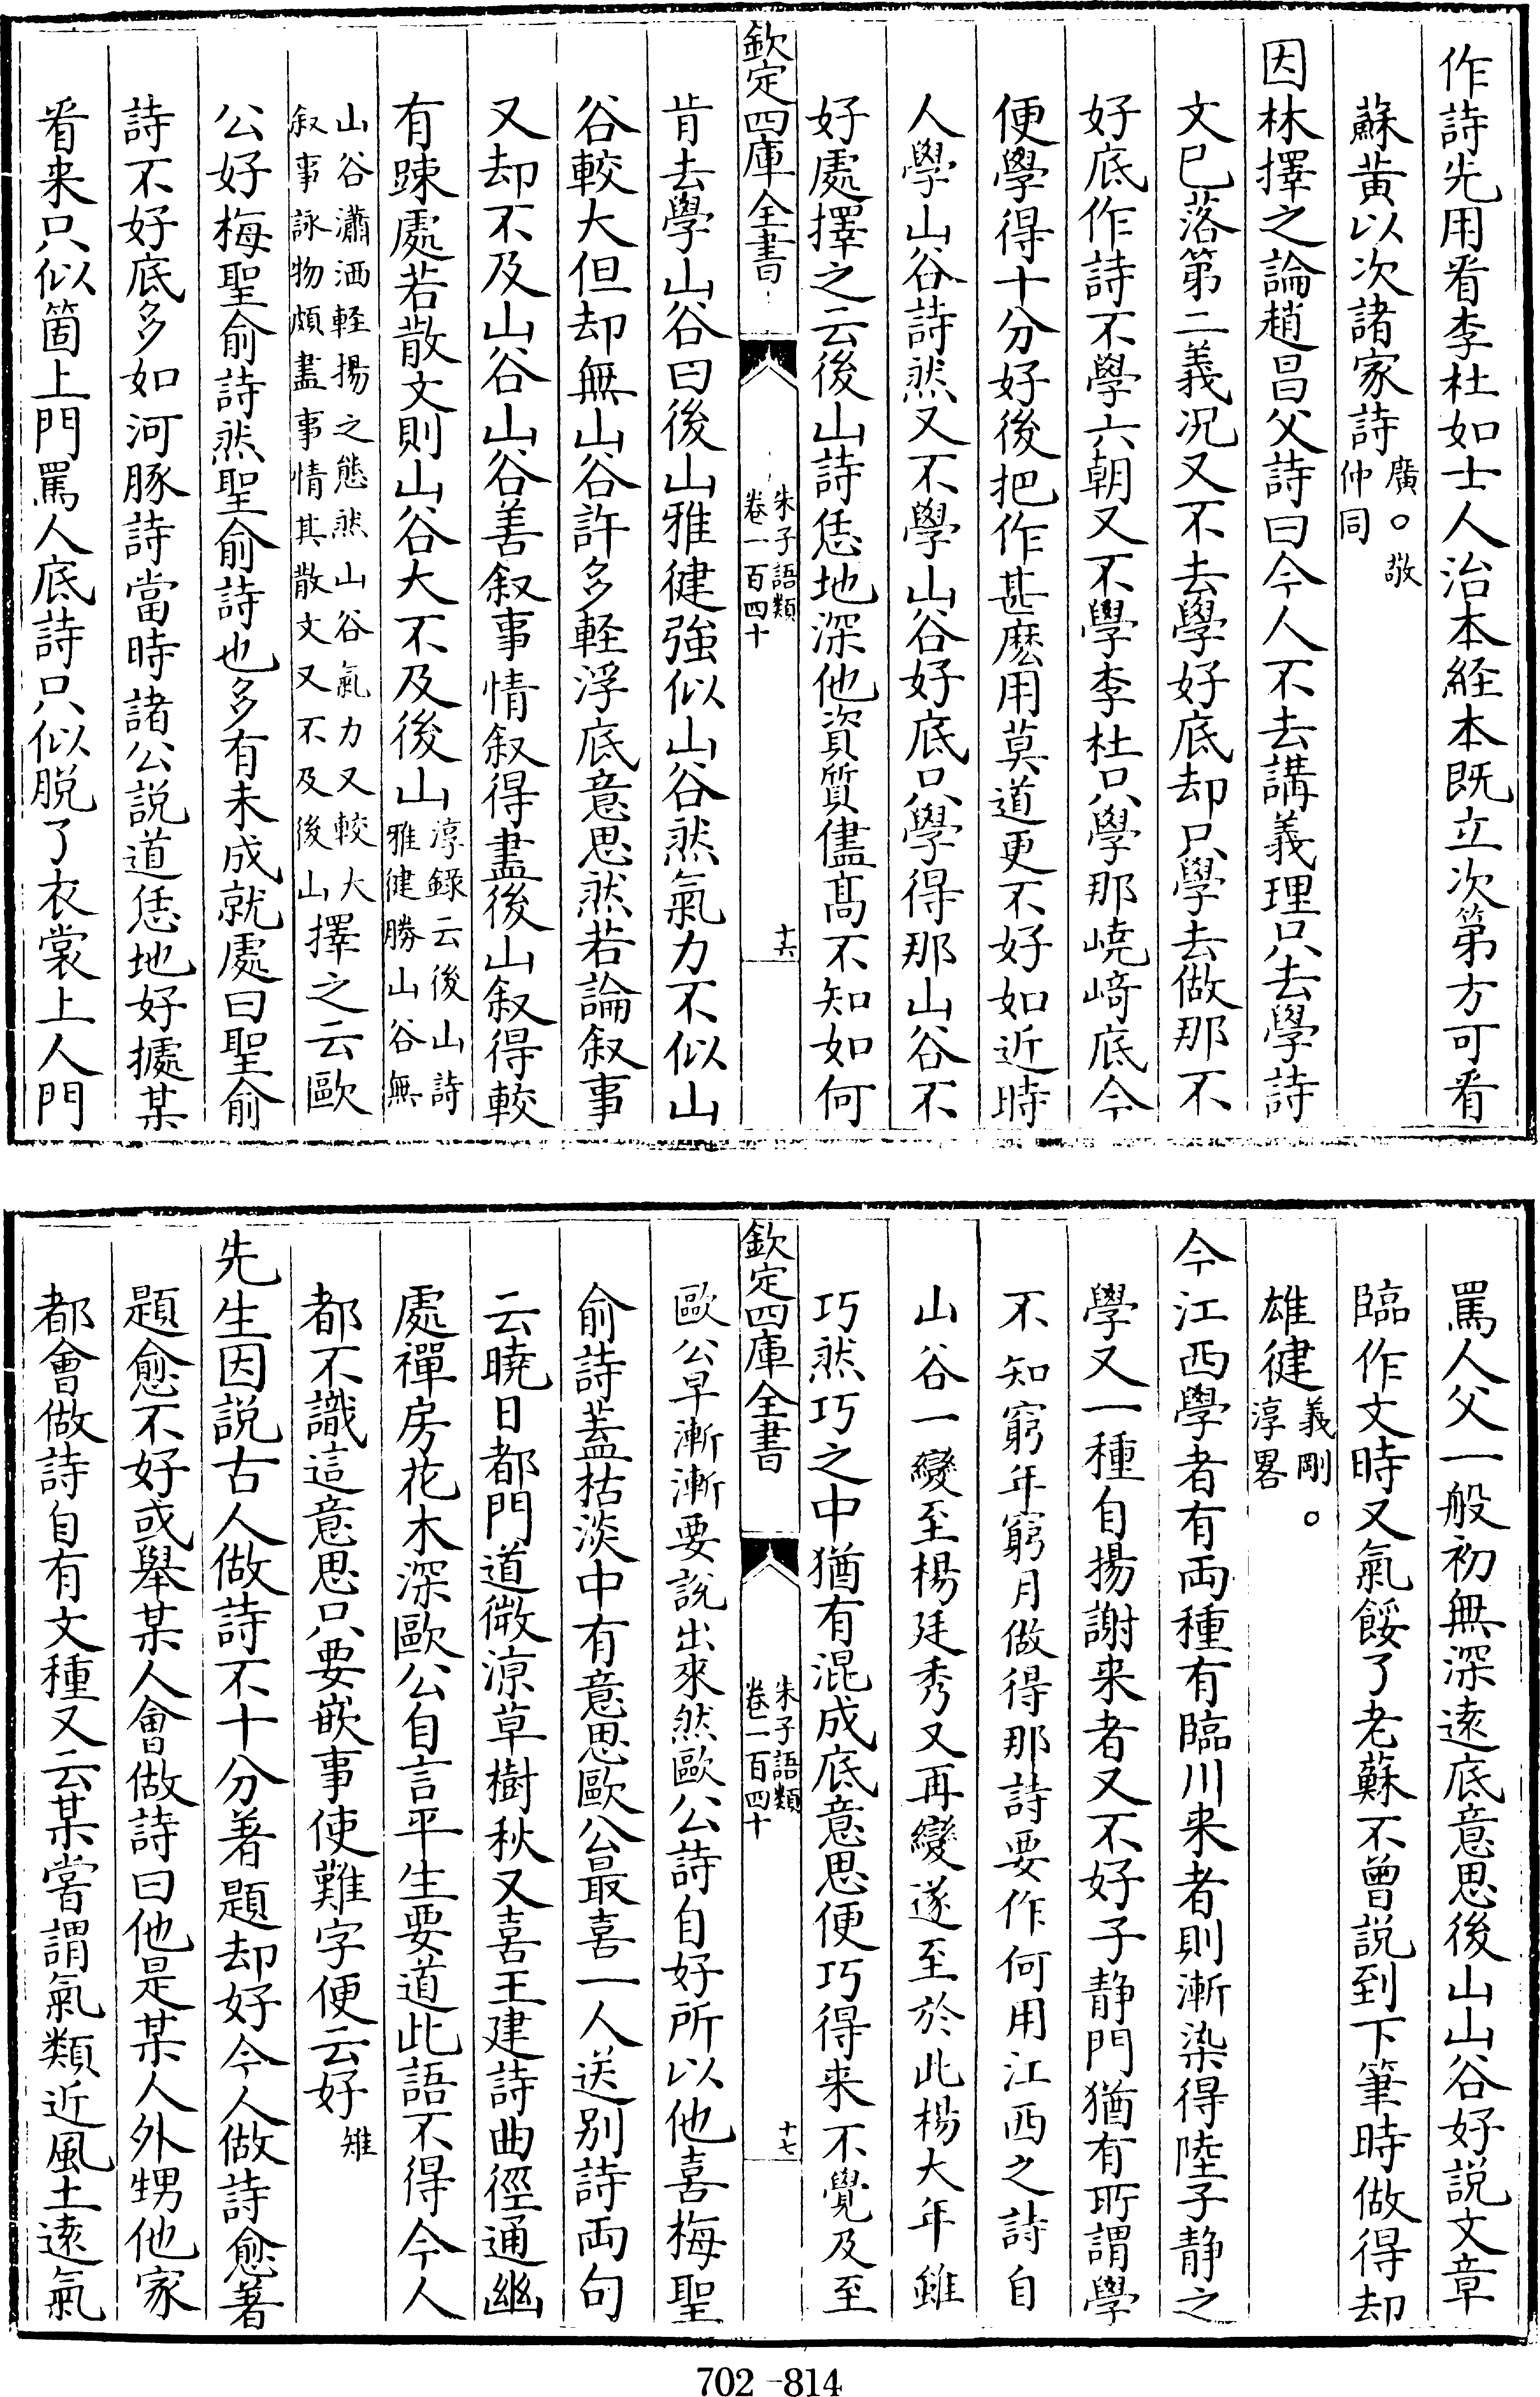 作詩先用㸔李杜如士人治本經本既立次第方可㸔
蘇黄以次諸家詩廣○敬仲同
因林擇之論趙昌父詩曰今人不去講義理只去學詩
文已落第二義况又不去學好底却只學去做那不
好底作詩不學六朝又不學李杜只學那嶢﨑底今
便學得十分好後把作甚麽用莫道更不好如近時
人學山谷詩然又不學山谷好底只學得那山谷不
好處擇之云後山詩恁地深他資質儘髙不知如何
欽定四庫全書
朱子語類
卷一百四十
十六
肯去學山谷曰後山雅健強似山谷然氣力不似山
谷較大但却無山谷許多輕浮底意思然若論叙事
又却不及山谷山谷善叙事情叙得盡後山叙得較
有踈處若散文則山谷大不及後山淳録云後山詩雅健勝山谷無
山谷瀟洒輕揚之態然山谷氣力又較大叙事詠物頗盡事情其散文又不及後山擇之云歐
公好梅聖俞詩然聖俞詩也多有未成就處曰聖俞
詩不好底多如河豚詩當時諸公説道恁地好據某
㸔来只似箇上門罵人底詩只似脱了衣裳上人門
罵人父一般初無深逺底意思後山山谷好説文章
臨作文時又氣餒了老蘇不曾説到下筆時做得却
雄健義剛○淳畧
今江西學者有兩種有臨川来者則漸染得陸子静之
學又一種自揚謝来者又不好子静門猶有所謂學
不知窮年窮月做得那詩要作何用江西之詩自
山谷一變至楊廷秀又再變遂至於此楊大年雖
巧然巧之中猶有混成底意思便巧得来不覺及至
欽定四庫全書
朱子語類
卷一百四十
十七
歐公早漸漸要說出來然歐公詩自好所以他喜梅聖
俞詩葢枯淡中有意思歐公最喜一人送别詩兩句
云曉日都門道微涼草樹秋又喜王建詩曲徑通幽
處禪房花木深歐公自言平生要道此語不得今人
都不識這意思只要嵌事使難字便云好雉
先生因説古人做詩不十分著題却好今人做詩愈著
題愈不好或舉某人會做詩曰他是某人外甥他家
都會做詩自有文種又云某嘗謂氣類近風土逺氣
702-814